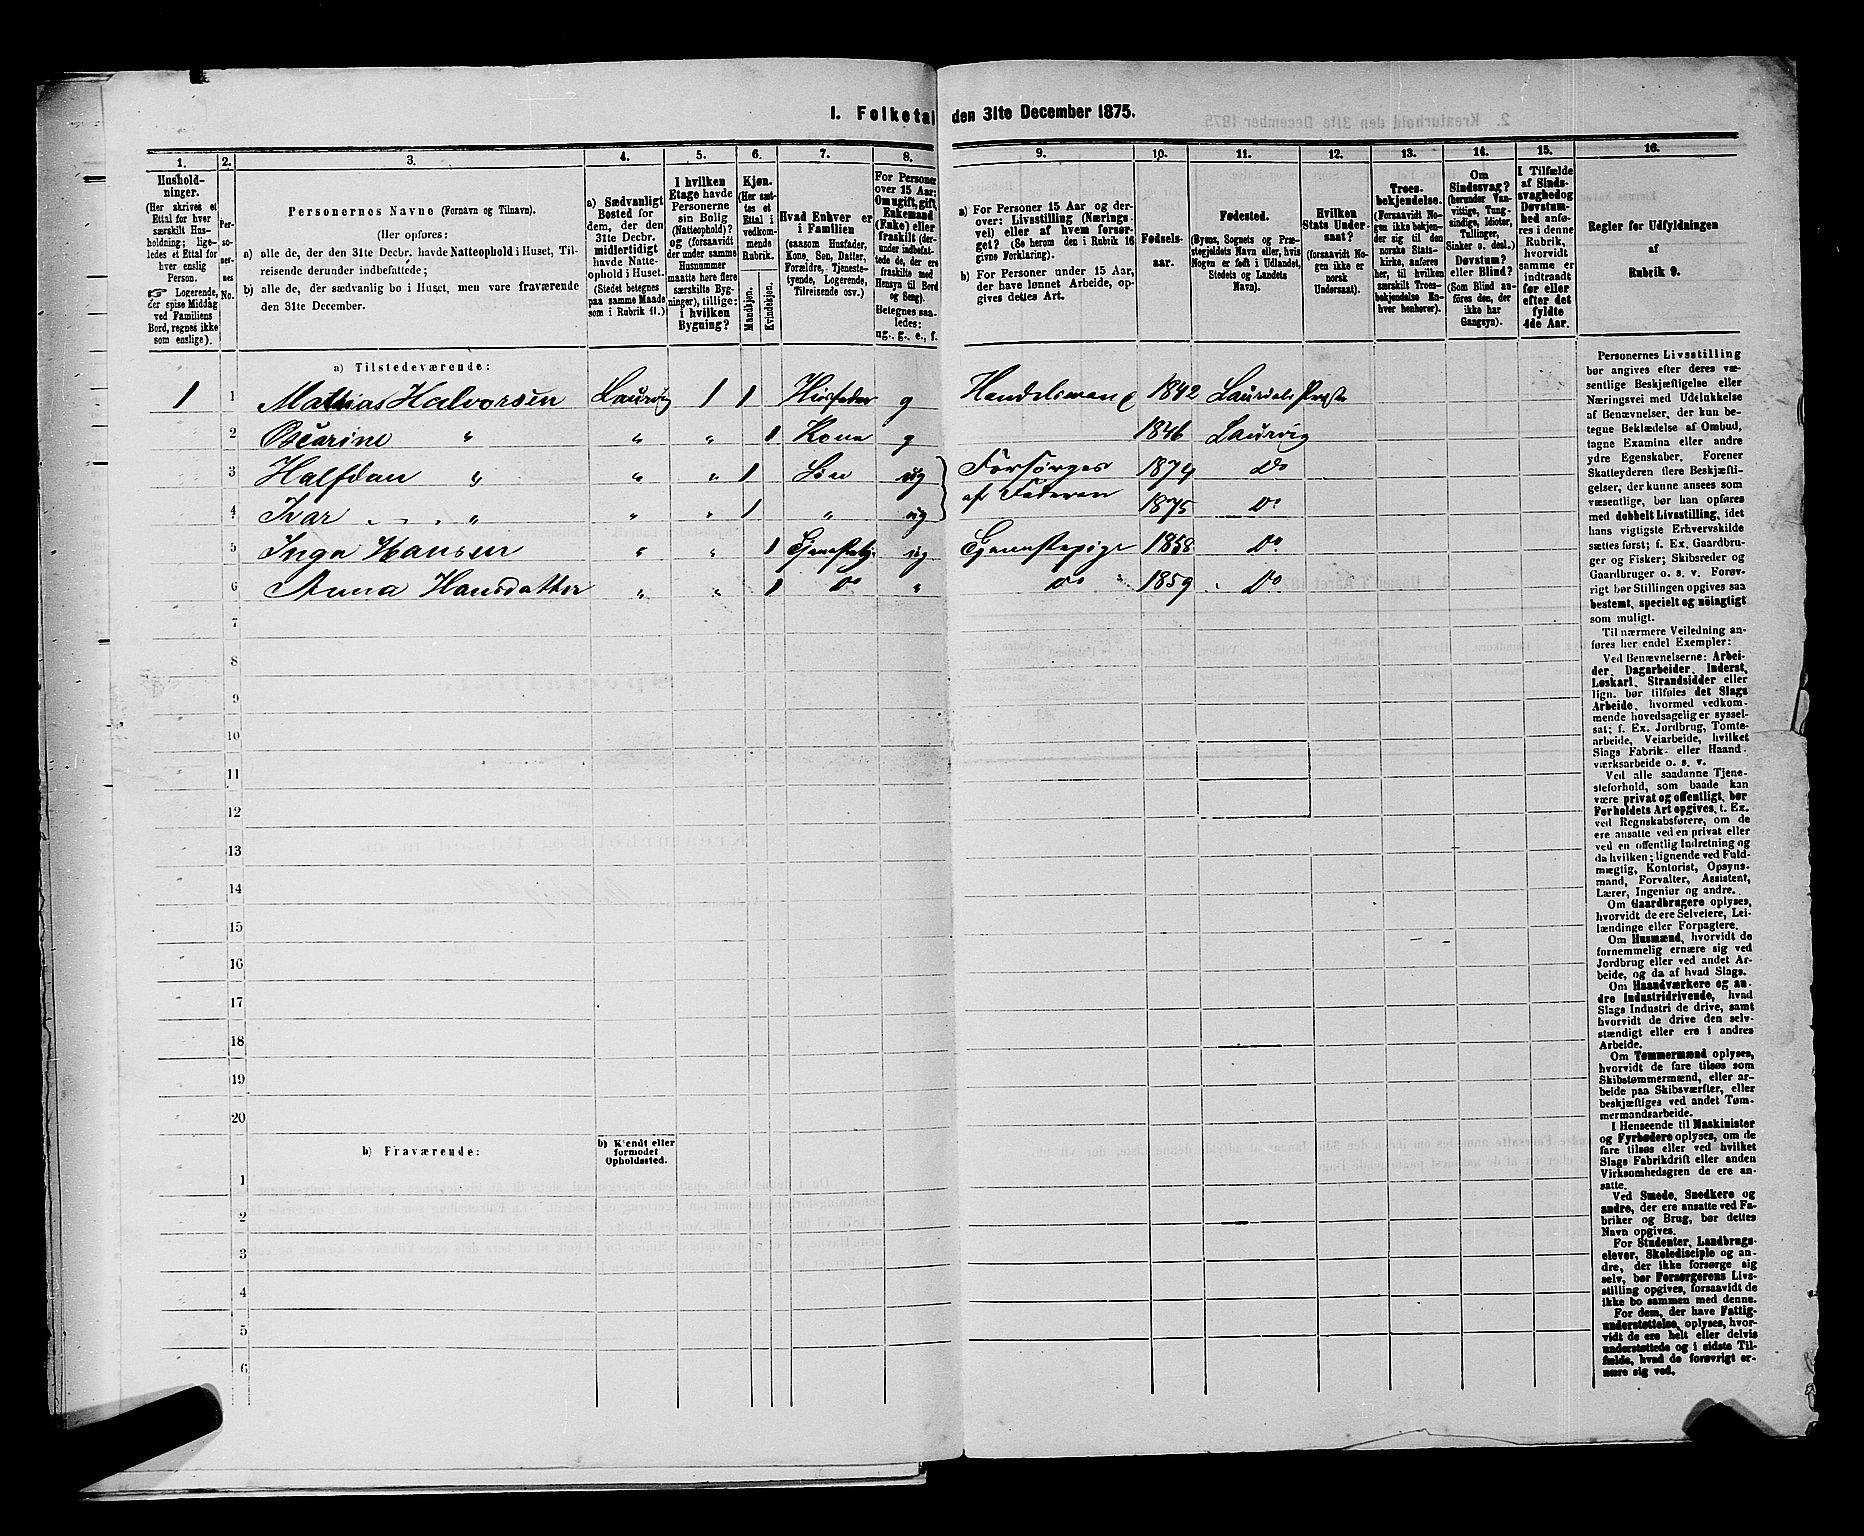 1. Folketal den 31te December 1875.
1. 2. 3. 4. 5. 6. 7. 8. 9. 10. 11. 12. 13. 14. 15. 16.
Hushold-
ninger.
(Her skrives et
Ettal for hver
særskilt Hus-
holdning; lige-
ledes et Ettal for
hver enslig
Person.
☞ Logerende,
der spise Middag
ved Familiens
Bord, regnes ikke
som enslige).
Per-
so-
ner-
nes
No.
Personernes Navne (Fornavn og Tilnavn).
(Her opføres:
a) alle de, der den 31te Decbr. havde Natteophold i Huset, Til-
reisende derunder indbefattede;
b) alle de, der sædvanlig bo i Huset, men vare fraværende
den 31te December.
a) Sædvanligt
Bosted for
dem, der den
31te Decbr.
midlertidigt
havde Natte-
ophold i Huset.
(Stedet betegnes
paa samme Maade
som i Rubrik 11.)
I hvilken
Etage havde
Personerne
sin Bolig
(Natteophold)?
og (forsaavidt
der under samme
Husnummer
maatte høre flere
særskilte Byg-
ninger), tillige:
i hvilken
Bygning?
Kjøn.
(Her sæt-
tes et
Ettal i
vedkom-
mende
Rubrik.
Mandkjøn.
Kvindekjøn.
Hvad Enhver er
i Familien
(saasom Husfader,
Kone, Søn, Datter,
Forældre, Tjeneste-
tyende, Logerende,
Tilreisende osv.)
For Personer
over 15 Aar:
Om ugift, gift,
Enkemand
(Enke) eller
fraskilt (der-
under indbefat-
tede de, der ere
fraskilte med
Hensyn til Bord
og Seng).
Betegnes saa-
ledes:
ug., g., e., f.
a) For Personer 15 Aar og der-
over: Livsstilling (Nærings-
vei) eller af hvem forsør-
get? (Se herom den i Rubrik 16
givne Forklaring).
b) For Personer under 15 Aar,
der have lønnet Arbeide, op-
gives dettes Art.
Fødsels-
aar.
Fødested.
(Byens, Sognets og Præ-
stegjeldets Navn eller, hvis
Nogen er født i Udlandet,
Stedets og Landets
Navn).
Hvilken
Stats Under-
saat?
(forsaavidt No-
gen ikke er
norsk
Undersaat).
Troes-
bekjendelse.
(Forsaavidt No-
gen ikke bekjen-
der sig til den
norske Stats-
kirke, anføres
her, til hvilken
særskilt Troes-
bekjendelse En-
hver henhører).
Om
Sindssvag?
(herunder Van-
vittige, Tung-
sindige, Idioter,
Tullinger,
Sinker o. desl.)
Døvstum?
eller Blind?
(Som Blind an-
føres den, der
ikke har
Gangsyn).
I Tilfælde
af Sinds-
svaghed og
Døvstum-
hed anfø-
res i denne
Rubrik,
hvorvidt
samme er
indtraadt
før eller
efter det
fyldte
4de Aar.
Regler for Udfyldningen
af
Rubrik 9.
a) Tilstedeværende:
1 1 Mathias Halvorsen Laurvig 1 1 Husfader g Handelsmand 1842 Laurdals Præst
2 Oscarine " " " 1 Kone g 1846 Laurvig
3 Halfdan " " " 1 Søn ug Forsørges 1874 Do
4 Ivar " " " 1 " ug af Faderen 1875 Do
5 Inga Hansen " " 1 ug Tjenestepige 1858 Do
6 Anna Hansdatter " " 1 Do " Do 1859 Do
7
8
9
10
11
12
13
14
15
16
17
18
19
20
b) Fraværende:
b) Kjendt eller
formodet
Opholdssted.
1
2
3
4
5
6
Personernes Livsstilling
bør angives efter deres væ-
sentlige Beskjæftigelse eller
Næringsvei med Udelukkelse
af Benævnelser, der kun be-
tegne Beklædelse af Ombud,
tagne Examina eller andre
ydre Egenskaber. Forener
Skatteyderen flere Beskjæfti-
gelser, der kunne ansees som
væsentlige, bør han opføres
med dobbelt Livsstilling, idet
hans vigtigste Erhvervskilde
sættes først; f. Ex. Gaardbru-
ger og Fisker; Skibsreder og
Gaardbruger o. s. v. Forøv-
rigt bør Stillingen opgives saa
bestemt, specielt og nøiagtigt
som muligt.
Til nærmere Veiledning an-
føres her endel Exempler:
Ved Benævnelserne: Arbei-
der, Dagarbeider, Inderst,
Løskarl, Strandsidder eller
lign. bør tilføies det Slags
Arbeide, hvormed vedkom-
mende hovedsagelig er syssel-
sat; f. Ex. Jordbrug, Tomte-
arbeide, Veiarbeide, hvilket
Slags Fabrik- eller Haand-
værksarbeide o. s. v.
Ved alle saadanne Tjene-
steforhold, som baade kan
være privat og offentligt, bør
Forholdets Art opgives, t. Ex.
ved Regnskabsførere, om de
ere ansatte ved en privat eller
ved en offentlig Indretning og
da hvilken; lignende ved Fuld-
mægtig, Kontorist, Opsyns-
mand, Forvalter, Assistent,
Lærer, Ingeniør og andre.
Om Gaardbrugere oplyses,
hvorvidt de ere Selveiere, Lei-
lændinge eller Forpagtere.
Om Husmænd, hvorvidt de
fornemmelig ernære sig ved
Jordbrug eller ved andet Ar-
beide, og da af hvad Slags.
Om Haandværkere og an-
dre Industridrivende, hvad
Slags Industri de drive, samt
hvorvidt de drive den selv-
stændigt eller ere i andres
Arbeide.
Om Tømmermænd oplyses,
hvorvidt de fare tilsøs som
Skibstømmermænd, eller ar-
beide paa Skibsværfter, eller
beskjæftiges ved andet Tøm-
mermandsarbeide.
I Henseende til Maskinister
og Fyrbødere oplyses, om de
fare tilsøs eller ved hvilket
Slags Fabrikdrift eller anden
Virksomhedsgren de ere an-
satte.
Ved Smede, Snedkere og
andre, der ere ansatte ved Fa-
briker og Brug, bør dettes
Navn opgives.
For Studenter, Landbrugs-
elever, Skoledisciple og an-
dre, der ikke forsørge sig
selv, bør Forsørgerens Livs-
stilling opgives, forsaavidt de
ikke bo sammen med denne.
For dem, der have Fattig-
understøttelse, oplyses, hvor-
vidt de ere helt eller delvis
understøttede og i sidste Til-
fælde, hvad de forøvrigt er-
nære sig ved.